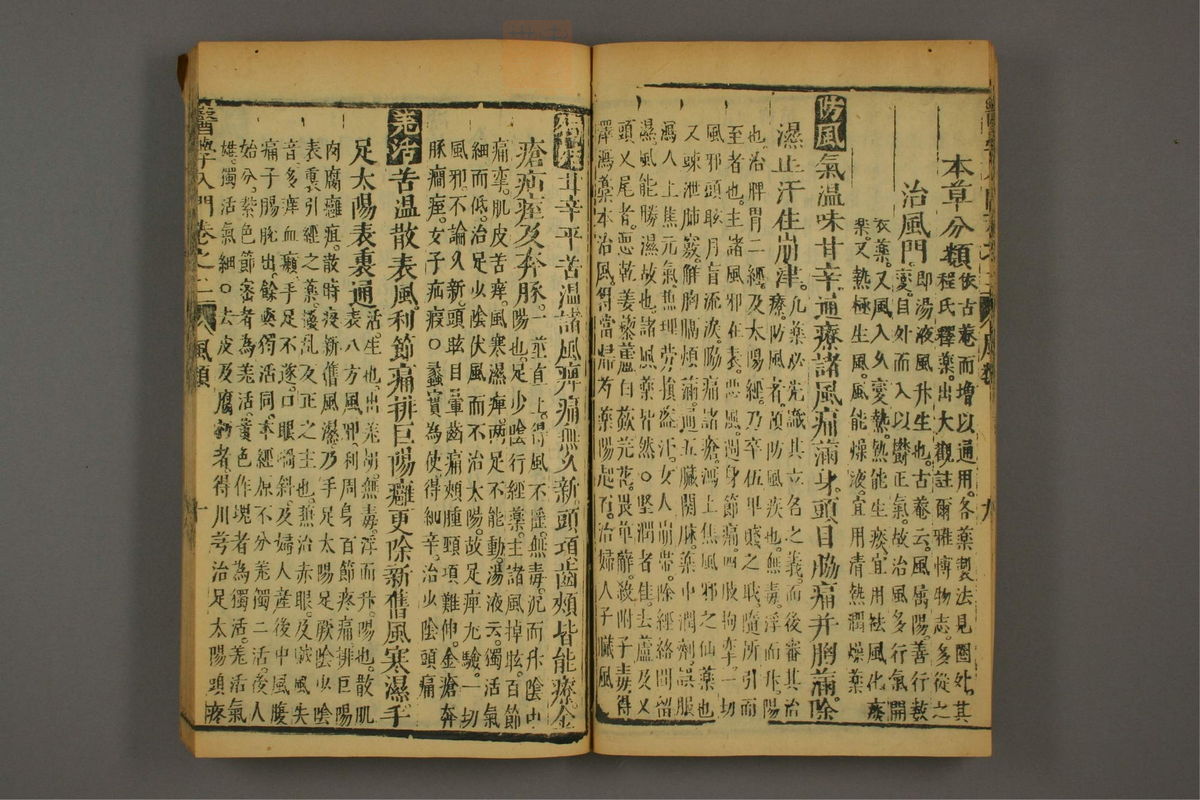 本草分類依古菴而增以通用。各藥製法見圈外。其
程氏釋藥出大觀註爾雅博物志。多從之
治風門。即湯液風升生也。古菴云。風屬陽善行數
變。自外而入以鬱正氣。故治風多行氣開
表藥。又風入久變熱。熱能生痰。宜用祛風化痰
藥。又熱極生風。風能燥液。宜用清熱潤燥藥
防風氣溫味甘辛。通療諸風痛滿身。頭目脇痛并胸滿。除
濕止汗住崩津。凡藥必先識其立名之義。而後審其治
療。防風者。預防風疾也。無毒。浮而升。陽
也。治脾胃二經。及太陽經。乃卒伍卑賤之職。隨所引而
至者也。主諸風邪在表。惡風。週身節痛。四肢拘牽。一切
風邪頭眩目盲流淚。脇痛諸瘡。瀉上焦風邪之仙藥也
又疎泄肺竅。解胸膈煩滿。通五臟關脉。藥中潤劑。誤服
瀉人上焦元氣。兼理勞損盜汗。女人崩帶。除經絡間留
濕。風能勝濕故也。諸風藥皆然。○堅潤者佳。去蘆及叉
頭叉尾者。惡乾姜藜蘆白蘞芫花。畏萆薢。殺附子毒。得
澤瀉藁本治風。得當歸芍藥陽起石。治婦人子臟風
獨活甘辛平苦溫。諸風痹痛無久新。頭項齒頰皆能療。金
瘡疝痓及奔豚。一莖直上。得風不搖。無毒。沉而升。陰中
陽也。足少陰行經藥。主諸風掉眩。百節
痛攣。肌皮苦痒。風寒濕痹兩足不能動。湯液云。獨活氣
細而低。治足少陰伏風而不治太陽。故足痹尤驗。一切
風邪。不論久新。頭眩目暈齒痛頰腫頸項難伸。金瘡奔
豚癎痓。女子疝瘕○蠡實為使。得細辛。治少陰頭痛
羌活苦溫散表風。利節痛排巨陽癰。更除新舊風寒濕。手
足太陽表裏通活。生也。出羌胡。無毒。浮而升。陽也。散肌
表八方風邪。利周身百節疼痛。排巨陽
肉腐癰疽。散時疫新舊風濕。乃手足太陽足厥陰少陰
表裏引經之藥。撥亂反正之主也。兼治赤眼。及賊風失
音多痒血癩。手足不遂。口眼喎斜。及婦人產後中風腹
痛子腸脫出。餘與獨活同。本經原不分羌獨二活。後人
始分。紫色節密者為羌活。黃色作塊者為獨活。羌活氣
雄。獨活氣細。○去皮及腐朽者。得川芎治足太陽頭疼
醫學入門卷之二
風類
十